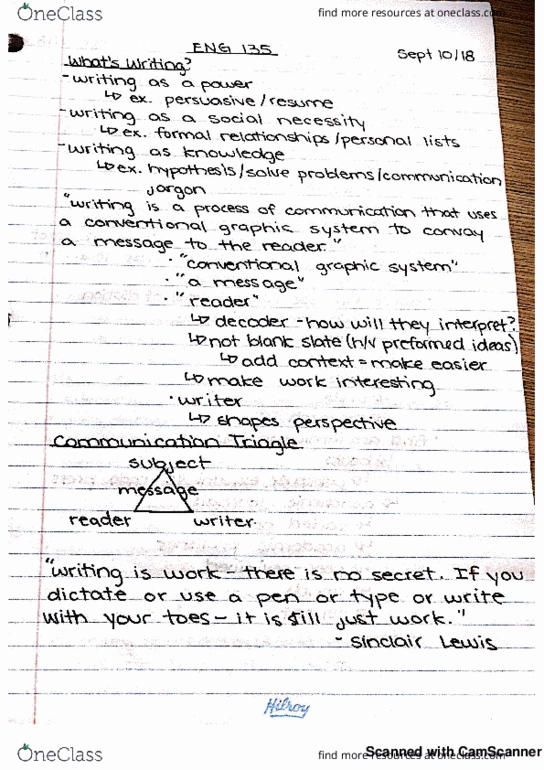 OneClass
find more resources at oneclass.com
ENG 135
Sept 10/18
What's Writing?
-writing as a power
↳ ex. persuasive/resume
-writing as a social necessity
↳ ex. formal relationships/personal lists
-writing as knowledge
↳ ex. hypothesis/solve problems/communication
jargon
"writing is a process of communication that uses
a conventional graphic system to convay
a message to the reader."
· "conventional graphic system"
· "a message"
· "reader"
↳ decoder - how will they interpret?
↳ not blank slate (h/v preformed ideas)
↳ add context = make easier
↳ make work interesting
· writer
↳ shapes perspective
Communication Triagle
subject
message
reader writer
"writing is work - there is no secret. If you
dictate or use a pen or type or write
with your toes - it is still just work."
- Sinclair Lewis
Hilroy
OneClass
find more resources at oneclass.com
Scanned with CamScanner